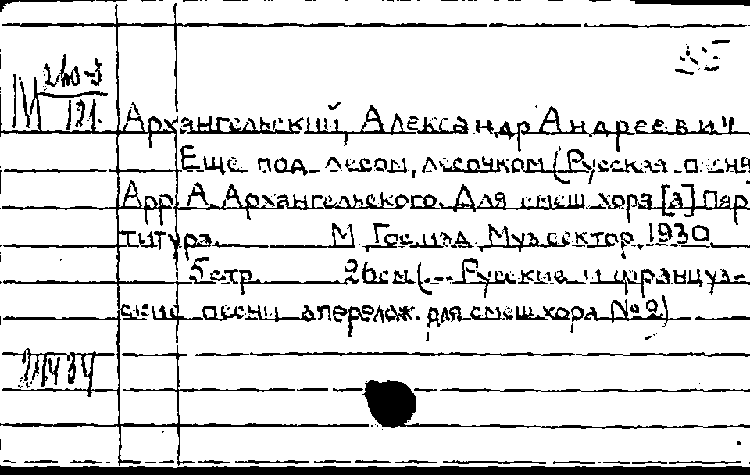 М 260-3
121.
Архангельский, Александр Андреевич
Еще под лесом, лесочком (Русская песня
Арр. А. Архангельского. Для смеш хора [а] Пар
титура. М., Гос. изд. Муз. сектор, 1930
5 стр. 26см (... Русские и француз-
ские песни в перелож. для смеш хора №2)